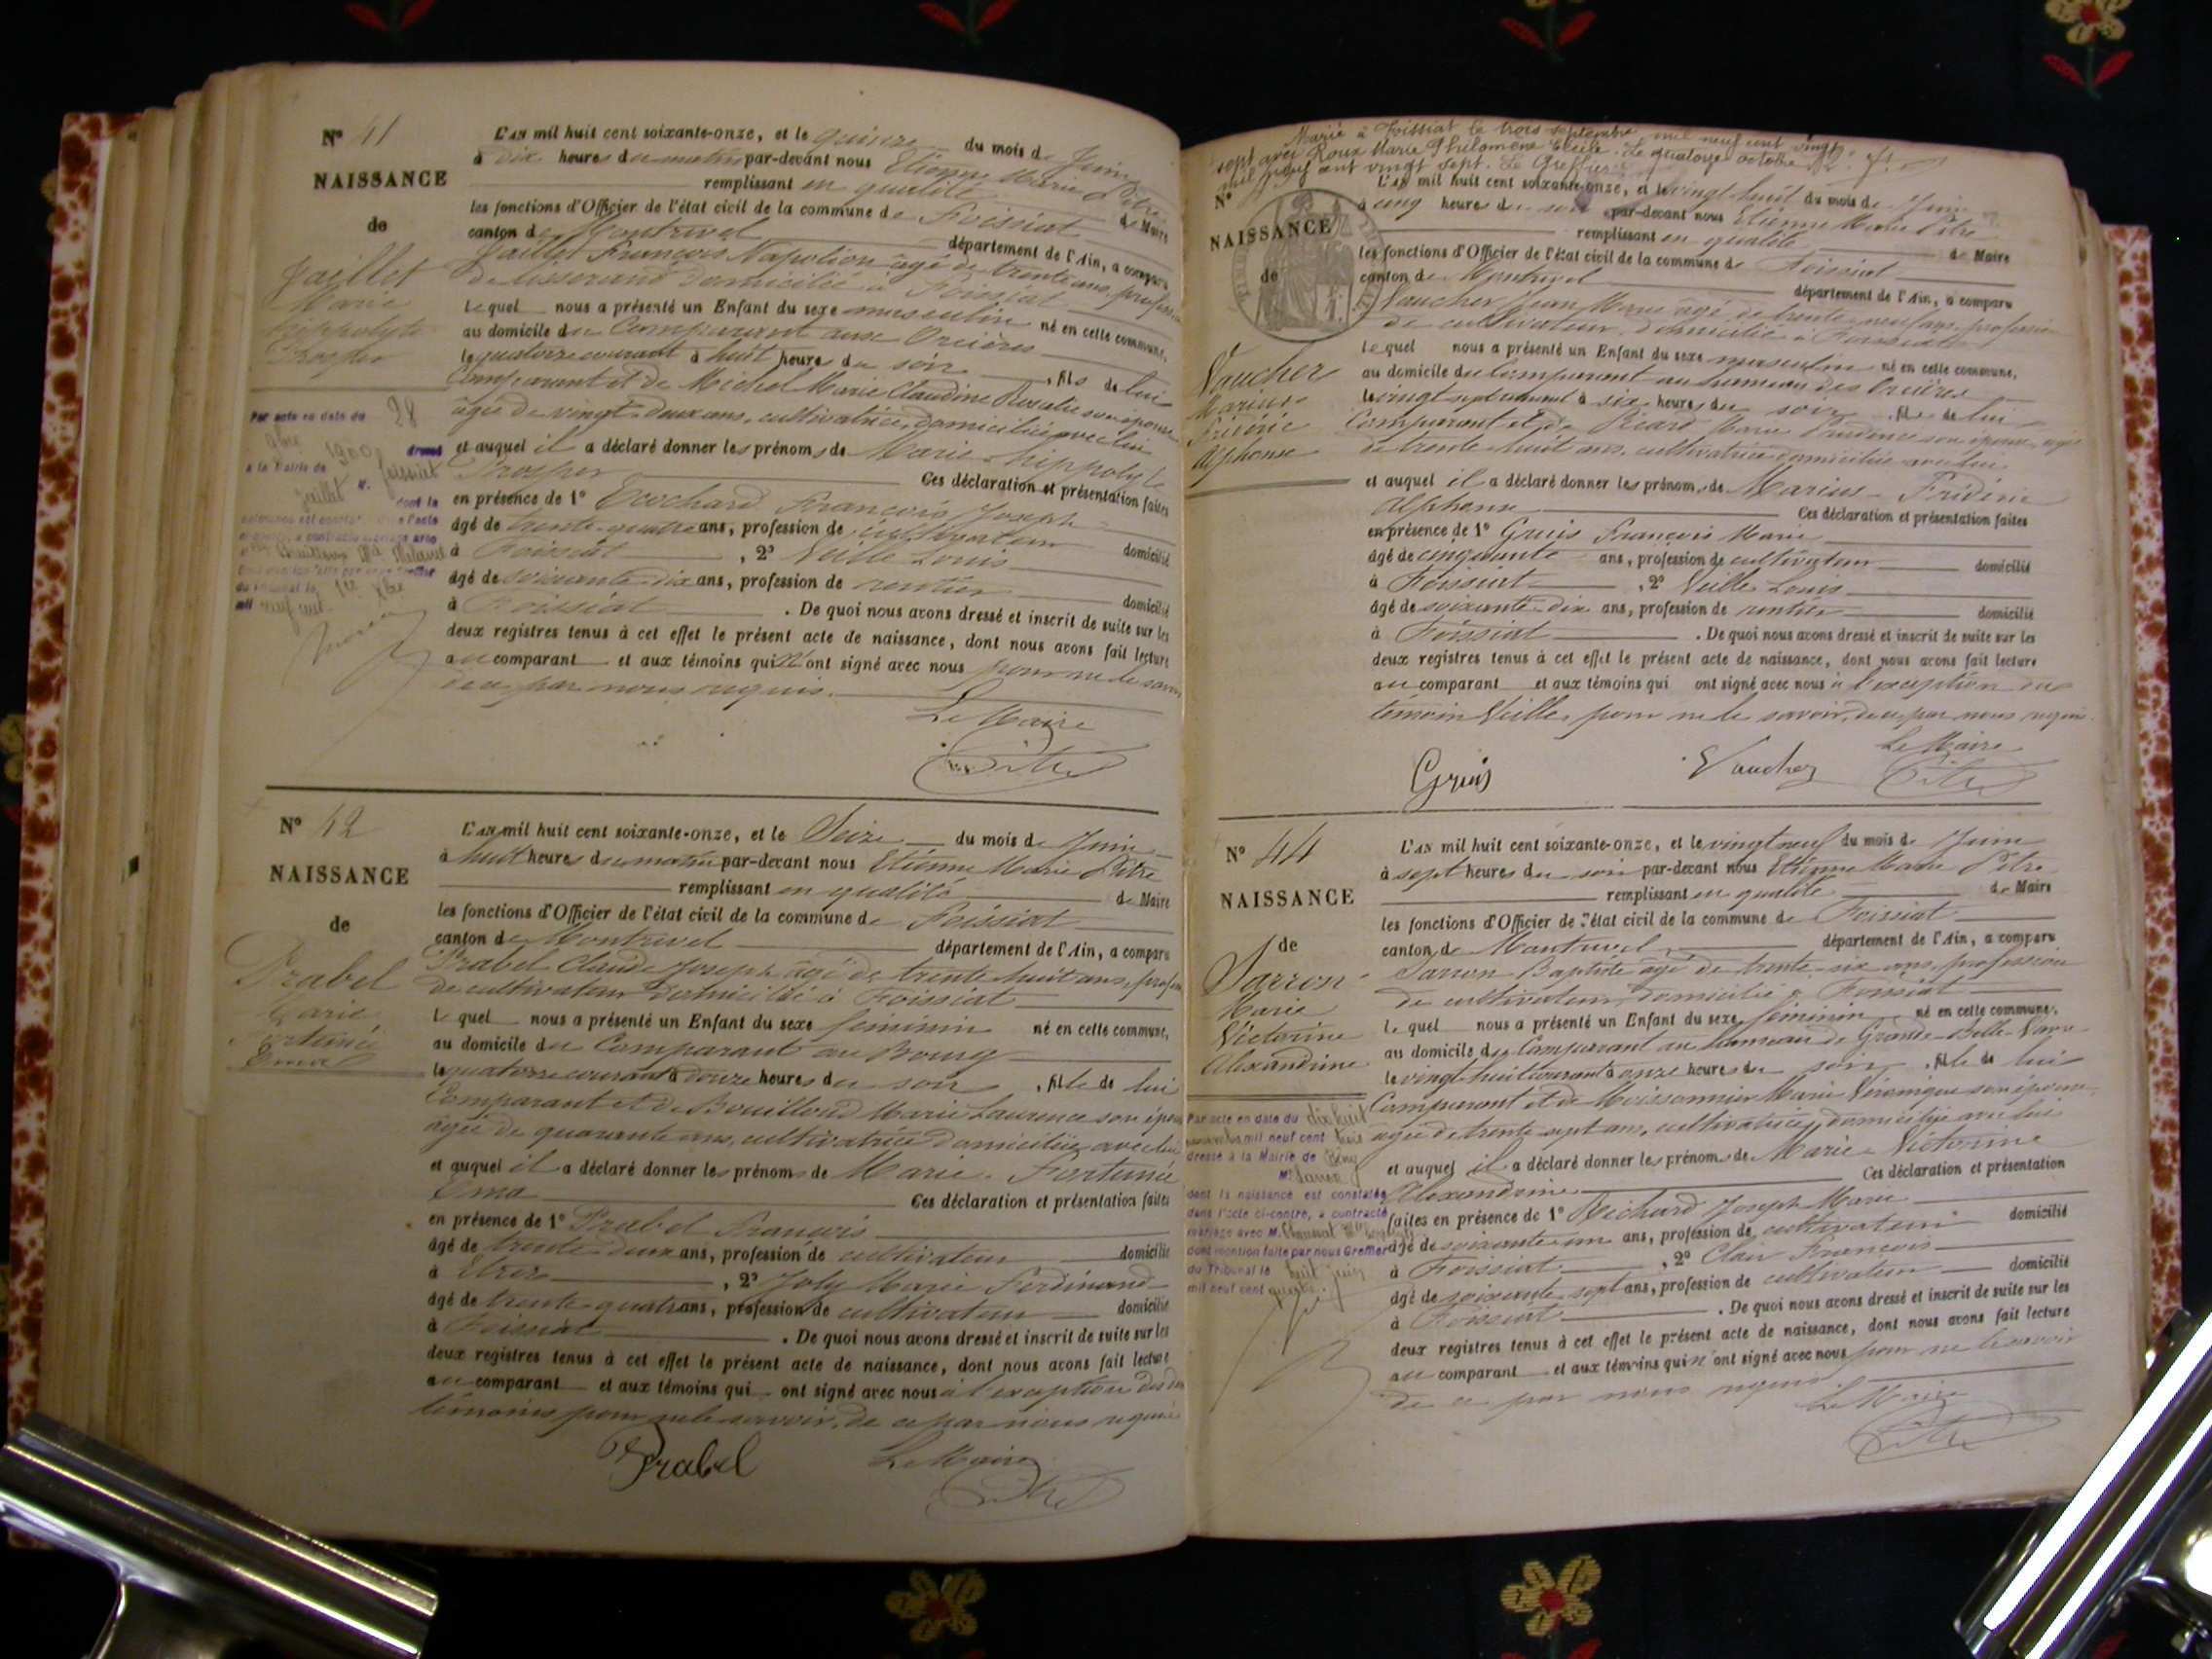 N° 41
NAISSANCE
de
Jaillet
Marie
hippolyte
Prosper
L'AN mil huit cent soixante-onze, et le quinze du mois de Juin
à dix heures du matin par-devant nous Etienne Marie Pitre
remplissant en qualité de Maire
les fonctions d'Officier de l'état civil de la commune de Foissiat
canton de Montrevel département de l'Ain, a comparu
Jaillet François Napoléon âgé de trente ans, profession
de tisserand domicilié à Foissiat
Lequel nous a présenté un Enfant du sexe masculin né en cette commune,
au domicile du Comparant aux Orcières
le quatorze courant à huit heures du soir, fils de lui
Comparant et de Michel Marie Claudine Rosalie son épouse
âgée de vingt-deux ans, cultivatrice, domiciliée avec lui
et auquel il a déclaré donner les prénoms de Marie hippolyte
Prosper Ces déclaration et présentation faites
en présence de 1° Ecochard François Joseph
âgé de trente-quatre ans, profession de cultivateur domicilié
à Foissiat, 2° Veille Louis
âgé de soixante-dix ans, profession de rentier domicilié
à Foissiat. De quoi nous avons dressé et inscrit de suite sur les
deux registres tenus à cet effet le présent acte de naissance, dont nous avons fait lecture
au comparant et aux témoins qui n'ont signé avec nous pour ne le savoir
de ce par nous requis.
Le Maire
Pitre
Par acte en date du 28
9bre 1900 dressé
à la Mairie de Foissiat
Jaillet M.
dont la
mil neuf cent
N° 42
NAISSANCE
de
Prabel
Marie
Fortunée
Ema
L'AN mil huit cent soixante-onze, et le Seize du mois de Juin
à huit heures du matin par-devant nous Etienne Marie Pitre
remplissant en qualité de Maire
les fonctions d'Officier de l'état civil de la commune de Foissiat
canton de Montrevel département de l'Ain, a comparu
Prabel Claude Joseph âgé de trente huit ans, profession
de cultivateur domicilié à Foissiat
Lequel nous a présenté un Enfant du sexe féminin né en cette commune,
au domicile du Comparant au Bourg
le quatorze courant à onze heures du soir, fille de lui
Comparant et de Bouilloud Marie Laurence son épouse
âgée de quarante ans, cultivatrice domiciliée avec lui
et auquel il a déclaré donner les prénoms de Marie Fortunée
Ema Ces déclaration et présentation faites
en présence de 1° Prabel François
âgé de trente-deux ans, profession de cultivateur domicilié
à Etrez, 2° Joly Marie Ferdinand
âgé de trente-quatre ans, profession de cultivateur domicilié
à Foissiat. De quoi nous avons dressé et inscrit de suite sur les
deux registres tenus à cet effet le présent acte de naissance, dont nous avons fait lecture
au comparant et aux témoins qui ont signé avec nous à l'exception des deux
témoins pour ne le savoir, de ce par nous requis
Prabel
Le Maire
Pitre
Marié à Foissiat le trois septembre mil neuf cent vingt
sept avec Roux Marie Philomène Cécile. Le quatorze octobre
mil neuf cent vingt sept. Le Greffier
N°
NAISSANCE
de
Vaucher
Marius
Frédéric
Alphonse
L'AN mil huit cent soixante-onze, et le vingt-huit du mois de Juin
à cinq heures du soir par-devant nous Etienne Marie Pitre
remplissant en qualité de Maire
les fonctions d'Officier de l'état civil de la commune de Foissiat
canton de Montrevel département de l'Ain, a comparu
Vaucher Jean Marie âgé de trente-neuf ans, profession
de cultivateur domicilié à Foissiat
Lequel nous a présenté un Enfant du sexe masculin né en cette commune,
au domicile du Comparant au hameau des Orcières
le vingt sept courant à six heures du soir, fils de lui
Comparant et de Picard Marie Prudence son épouse, âgée
de trente huit ans, cultivatrice domiciliée avec lui
et auquel il a déclaré donner les prénoms de Marius Frédéric
Alphonse Ces déclaration et présentation faites
en présence de 1° Gruis François Marie
âgé de cinquante ans, profession de cultivateur domicilié
à Foissiat, 2° Veille Louis
âgé de soixante-dix ans, profession de rentier domicilié
à Foissiat. De quoi nous avons dressé et inscrit de suite sur les
deux registres tenus à cet effet le présent acte de naissance, dont nous avons fait lecture
au comparant et aux témoins qui ont signé avec nous à l'exception du
témoin Veille, pour ne le savoir, de ce par nous requis
Gruis
Vaucher
Le Maire
Pitre
N° 44
NAISSANCE
de
Sarron
Marie
Victorine
Alexandrine
L'AN mil huit cent soixante-onze, et le vingt neuf du mois de Juin
à sept heures du soir par-devant nous Etienne Marie Pitre
remplissant en qualité de Maire
les fonctions d'Officier de l'état civil de la commune de Foissiat
canton de Montrevel département de l'Ain, a comparu
Sarron Baptiste âgé de trente-six ans, profession
de cultivateur, domicilié à Foissiat
Lequel nous a présenté un Enfant du sexe féminin né en cette commune,
au domicile du Comparant au hameau de Grande Belle Vavre
le vingt-huit courant à onze heures du soir, fille de lui
Comparant et de Moissonnier Marie Véronique son épouse
âgée de trente sept ans, cultivatrice, domiciliée avec lui
et auquel il a déclaré donner les prénoms de Marie Victorine
Alexandrine Ces déclaration et présentation
faites en présence de 1° Bichard Joseph Marie
âgé de soixante-un ans, profession de cultivateur domicilié
à Foissiat, 2° Clair François
âgé de soixante sept ans, profession de cultivateur domicilié
à Foissiat. De quoi nous avons dressé et inscrit de suite sur les
deux registres tenus à cet effet le présent acte de naissance, dont nous avons fait lecture
au comparant et aux témoins qui n'ont signé avec nous pour ne le savoir
de ce par nous requis
Le Maire
Pitre
Par acte en date du dix huit
mil neuf cent
dressé à la Mairie de
M Sarron
dont la naissance est constatée
dans l'acte ci-contre, a contracté
mariage avec M.
dont mention faite par nous Greffier
du Tribunal le huit juin
mil neuf cent